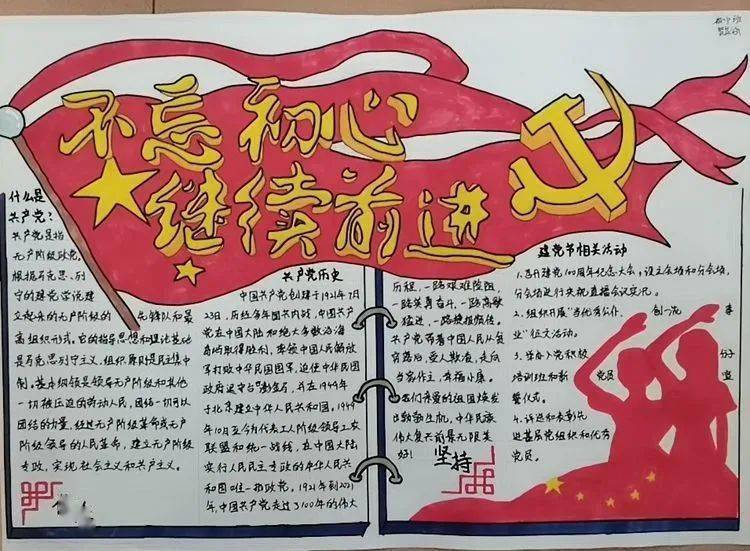 不忘初心
继续前进
什么是
共产党?
共产党是指
无产阶级政党。
根据马克思、列
宁的建党学说建
立起来的无产阶级的
先锋队和最
高组织形式。它的指导思想和理论基础
是马克思列宁主义,组织原则是民主集中
制,基本纲领是领导无产阶级和其他
一切被压迫的劳动人民,团结一切可以
团结的力量,经过无产阶级革命或无产
阶级领导的人民革命,建立无产阶级
专政,实现社会主义和共产主义。
共产党历史
中国共产党创建于1921年7月
23日,历经多年国共内战,中国共产
党在中国大陆和绝大多数沿海
岛屿取得胜利,率领中国人民解放
军打败中华民国国军,迫使中华民国
政府退守台澎金马,并在1949年
于北京建立中华人民共和国。1949年
10月至今为代表工人阶级领导工农
联盟和统一战线,在中国大陆
实行人民民主专政的中华人民共
和国唯一执政党。1921年到2021
年,中国共产党走过了100年的伟大
历程,一路艰难险阻,
一路英勇奋斗,一路高歌
猛进,一路捷报频传。
共产党带着中国人民从贫
穷落后,受人欺凌,走向
当家作主,幸福小康。
我们亲爱的祖国焕发
出勃勃生机,中华民族
伟大复兴前景无限美
好!
坚持
建党节相关活动
1.召开建党100周年纪念大会,设立会场和分会场,
分会场进行央视直播会议实况。
2.组织开展"当优秀公仆、
创一流
业"征文活动。
3.举办入党积极
分子
培训班和新
党员
宣
誓仪式。
4.评选和表彰先
进基层党组织和优秀
党员。